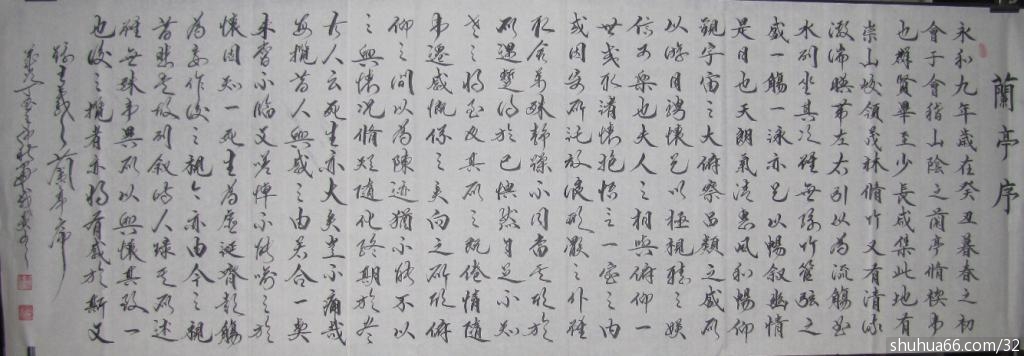 蘭亭序
永和九年歲在癸丑暮春之初
會于會稽山陰之蘭亭脩稧事
也群賢畢至少長咸集此地有
崇山峻領茂林脩竹又有清流
激湍暎帶左右引以為流觴曲
水列坐其次雖無絲竹管弦之
盛一觴一詠亦足以暢敘幽情
是日也天朗氣清惠風和暢仰
觀宇宙之大俯察品類之盛所
以遊目騁懷足以極視聽之娛
信可樂也夫人之相與俯仰一
世或取諸懷抱悟言一室之內
或因寄所託放浪形骸之外雖
取舍萬殊靜躁不同當其欣於
所遇暫得於己怏然自足不知
老之將至及其所之既倦情隨
事遷感慨係之矣向之所欣俯
仰之間以為陳迹猶不能不以
之興懷況脩短隨化終期於盡
古人云死生亦大矣豈不痛哉
每攬昔人興感之由若合一契
未嘗不臨文嗟悼不能喻之於
懷固知一死生為虛誕齊彭殤
為妄作後之視今亦由今之視
昔悲夫故列敘時人錄其所述
雖世殊事異所以興懷其致一
也後之攬者亦將有感於斯文
錄王羲之蘭亭序
shuhua66.com/32